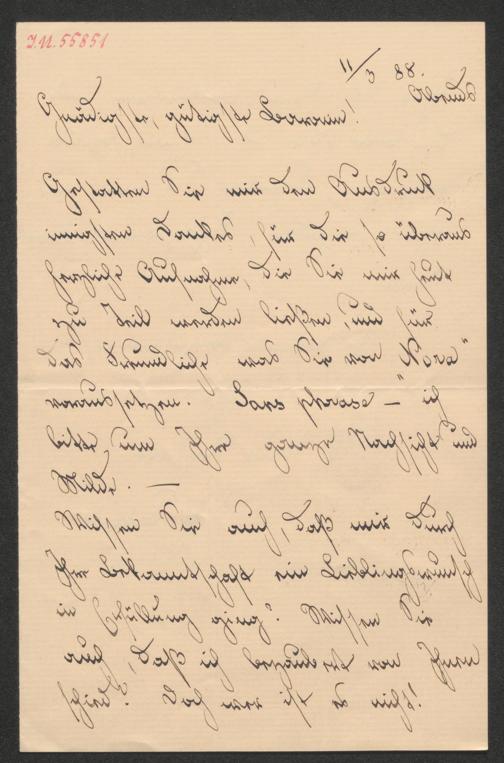 I.N. 55851
11/3 88.
Abends
Gnädigste, gütigste Baronin!
Gestatten Sie mir den Ausdruck
innigsten Dankes für die so überaus
herzliche Aufnahme, die Sie mir heute
zu Teil werden ließen, und für
das Freundliche was Sie von "Nora"
voraussetzen. Sans phrase – ich
bitte um Ihre ganze Nachsicht und
Milde. —
Wissen Sie auch, daß mir durch
Ihre Bekanntschaft ein Lieblingswunsch
in Erfüllung ging? Wissen Sie
auch, daß ich bezaubert von Ihnen
schied? Doch wer ist es nicht!